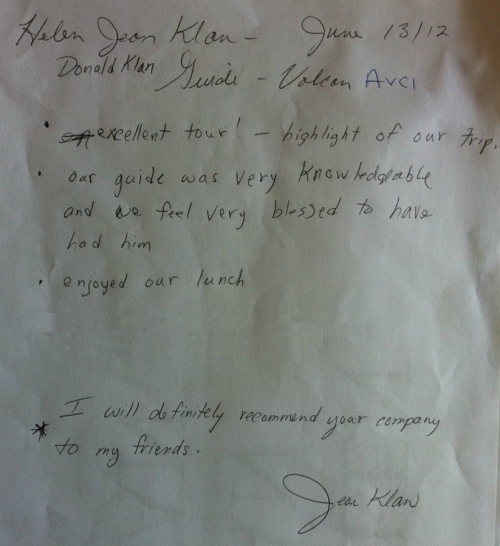 Helen Jean Klan - June 13/12
Donald Klan Guide - Volcan AVCI
• excellent tour! - highlight of our trip.
• our guide was very knowledgeable
and we feel very blessed to have
had him
• enjoyed our lunch
I will definitely recommend your company
* to my friends.
Jean Klan